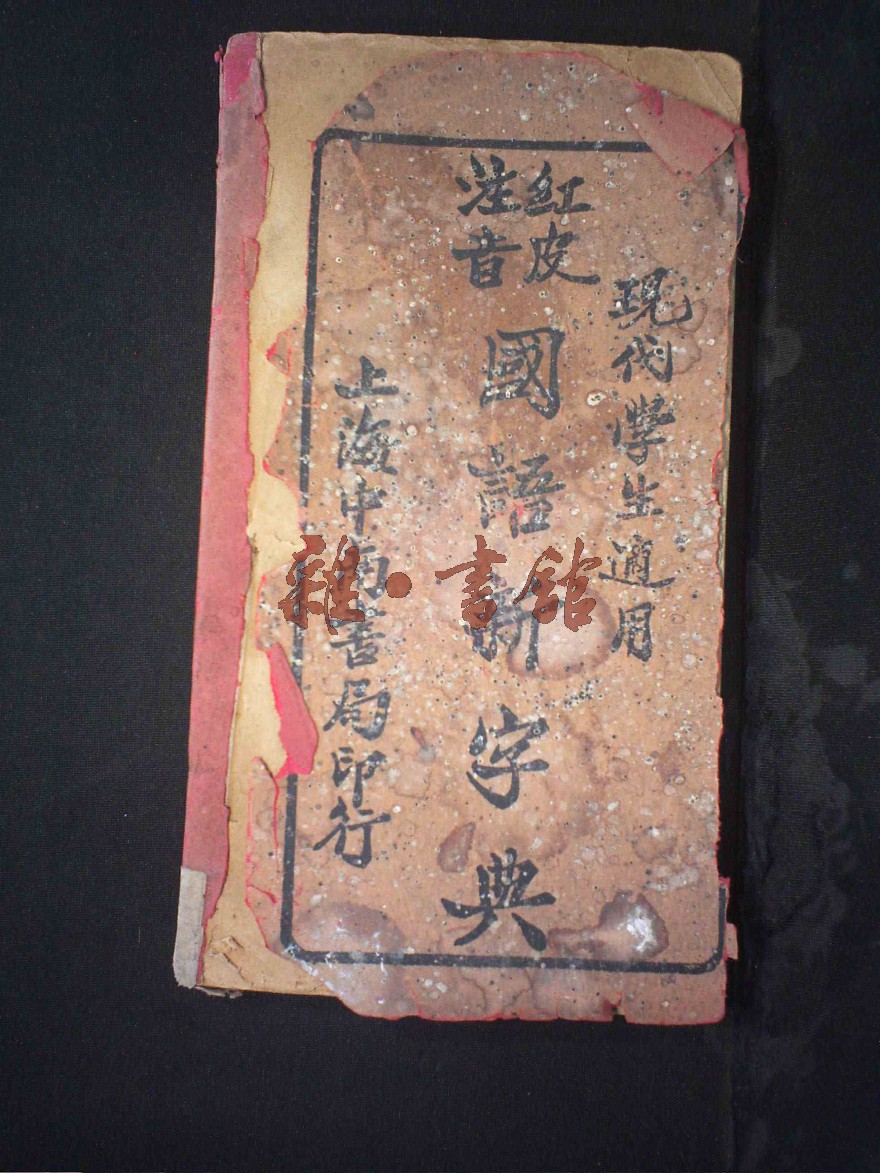 現代學生適用
紅皮
注音
國語新字典
上海中南書局印行
雜·書館